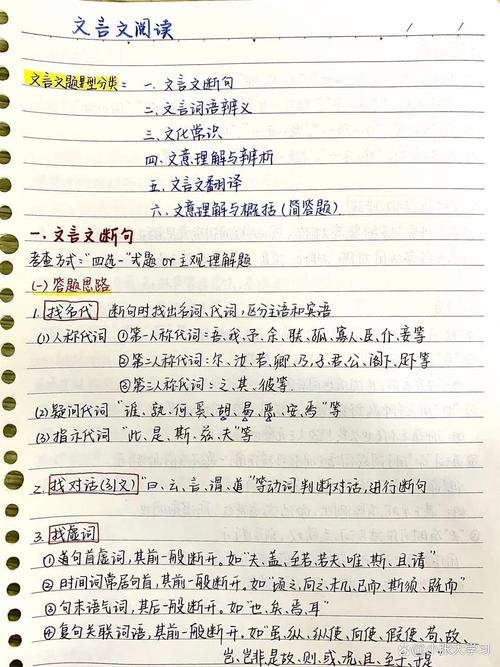 文言文阅读
文言文题型分类： 一. 文言文断句
二. 文言词语辨义
三. 文化常识
四. 文意理解与辨析
五. 文言文翻译
六. 文意理解与概括(简答题)
一. 文言文断句
考查方式："四选一"式题 or 主观理解题
(一) 答题思路
1. 找名代 断句时找出名词、代词，区分主语和宾语
(1) 人称代词 ①第一人称代词：吾、我、予、余、朕、孤、寡人、臣、仆、妾等
②第二人称代词：尔、汝、若、卿、乃、子、君、公、阁下、足下等
③第三人称代词：之、其、彼等
(2) 疑问代词 "谁、孰、何、奚、胡、曷、恶、安、焉"等
(3) 指示代词 "此、是、斯、兹、夫"等
2. 找对话(引文) "曰、云、言、谓、道"等动词判断对话，进行断句
3. 找虚词
①遇句首虚词，其前一般断开。如"夫、盖、至若、若夫、唯、斯、且、请"
②时间词常居句首，其前一般断开。如"顷之、向之、未几、已而、斯须、既而"
③句末语气词，其后一般断开。如"也、矣、焉、耳"
④复句关联词语，其前一般断开。如"虽、纵、纵使、向使、假使、苟、故、
岂、岂非、是故、则、或、况、且、至于
小张大学习